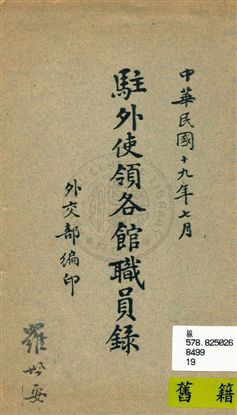 中華民國十九年七月
駐外使領各館職員錄
外交部編印
578.825026
8499
19
舊籍